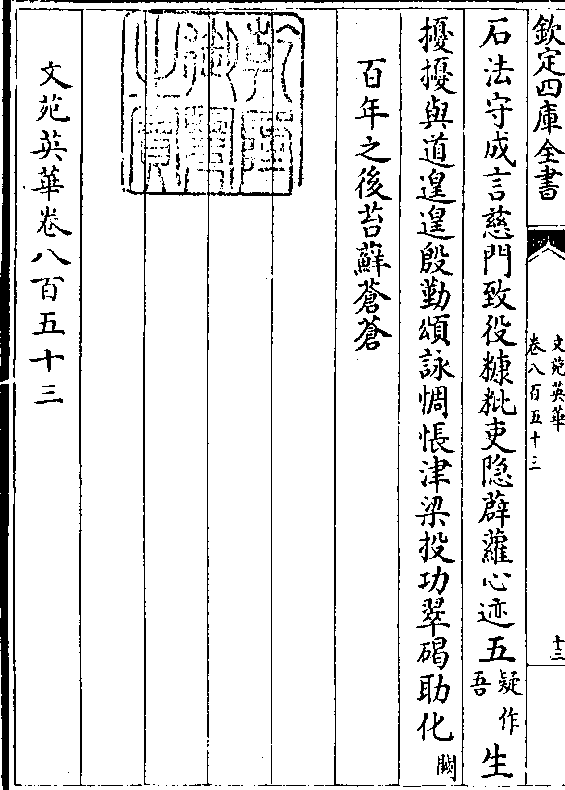 欽定四庫全書
文苑英華
卷八百五十三
十三
石法守成言慈門致役糠粃吏隐薜蘿心迹五疑作吾生
擾擾與道遑遑殷勤頌詠惆悵津梁投功翠碣助化闕
百年之後苔蘚蒼蒼
乾隆御覽之寶
文苑英華卷八百五十三